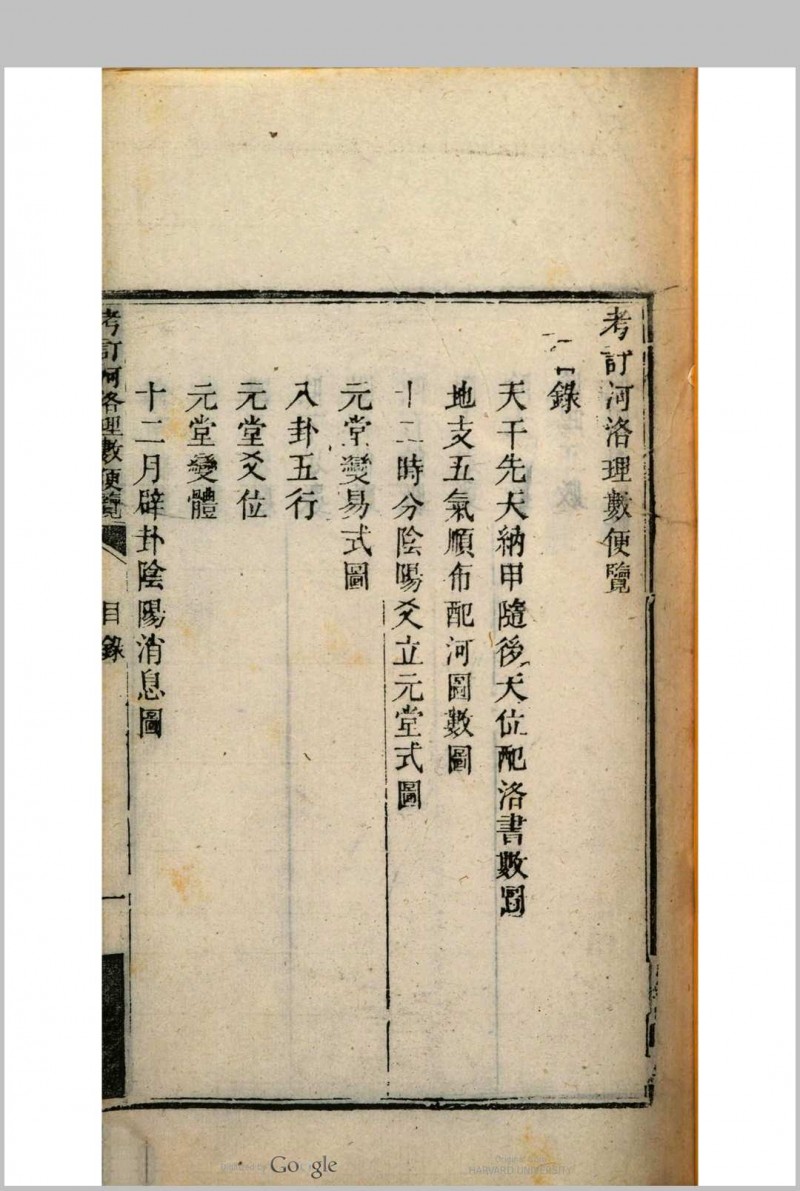 考訂河洛理數便覽
目錄
天干先天納甲隨後天位配洛書數圖
地支五氣順布配河圖數圖
十二時分陰陽爻立元堂式圖
元堂變易式圖
八卦五行
元堂爻位
元堂變體
十二月辟卦陰陽消息圖
考訂河洛理數便覽
目錄
一
Google
HARVARD UNIVERSITY